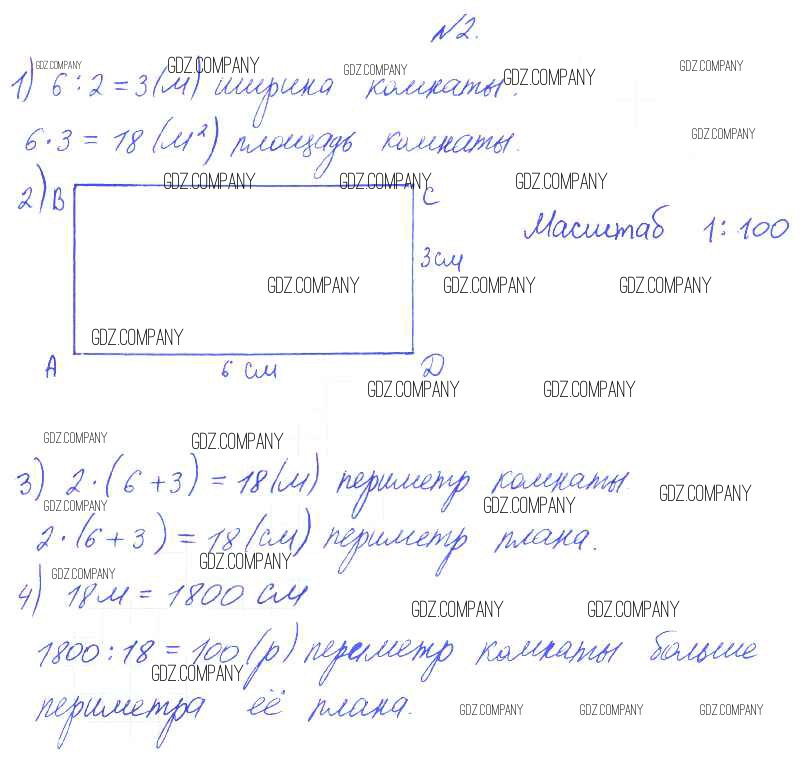 N2.
GDZ.COMPANY GDZ.COMPANY GDZ.COMPANY GDZ.COMPANY GDZ.COMPANY
1) 6 : 2 = 3 (м) ширина комнаты.
6 · 3 = 18 (м²) площадь комнаты.
GDZ.COMPANY
GDZ.COMPANY GDZ.COMPANY GDZ.COMPANY
2) B C
Масштаб 1 : 100
3 см
GDZ.COMPANY GDZ.COMPANY GDZ.COMPANY
GDZ.COMPANY
A 6 см D
GDZ.COMPANY GDZ.COMPANY
GDZ.COMPANY GDZ.COMPANY
3) 2 · (6 + 3) = 18 (м) периметр комнаты.
GDZ.COMPANY GDZ.COMPANY GDZ.COMPANY
2 · (6 + 3) = 18 (см) периметр плана.
GDZ.COMPANY GDZ.COMPANY
4) 18 м = 1800 см
GDZ.COMPANY GDZ.COMPANY
1800 : 18 = 100 (р) периметр комнаты больше
GDZ.COMPANY
периметра её плана.
GDZ.COMPANY GDZ.COMPANY GDZ.COMPANY